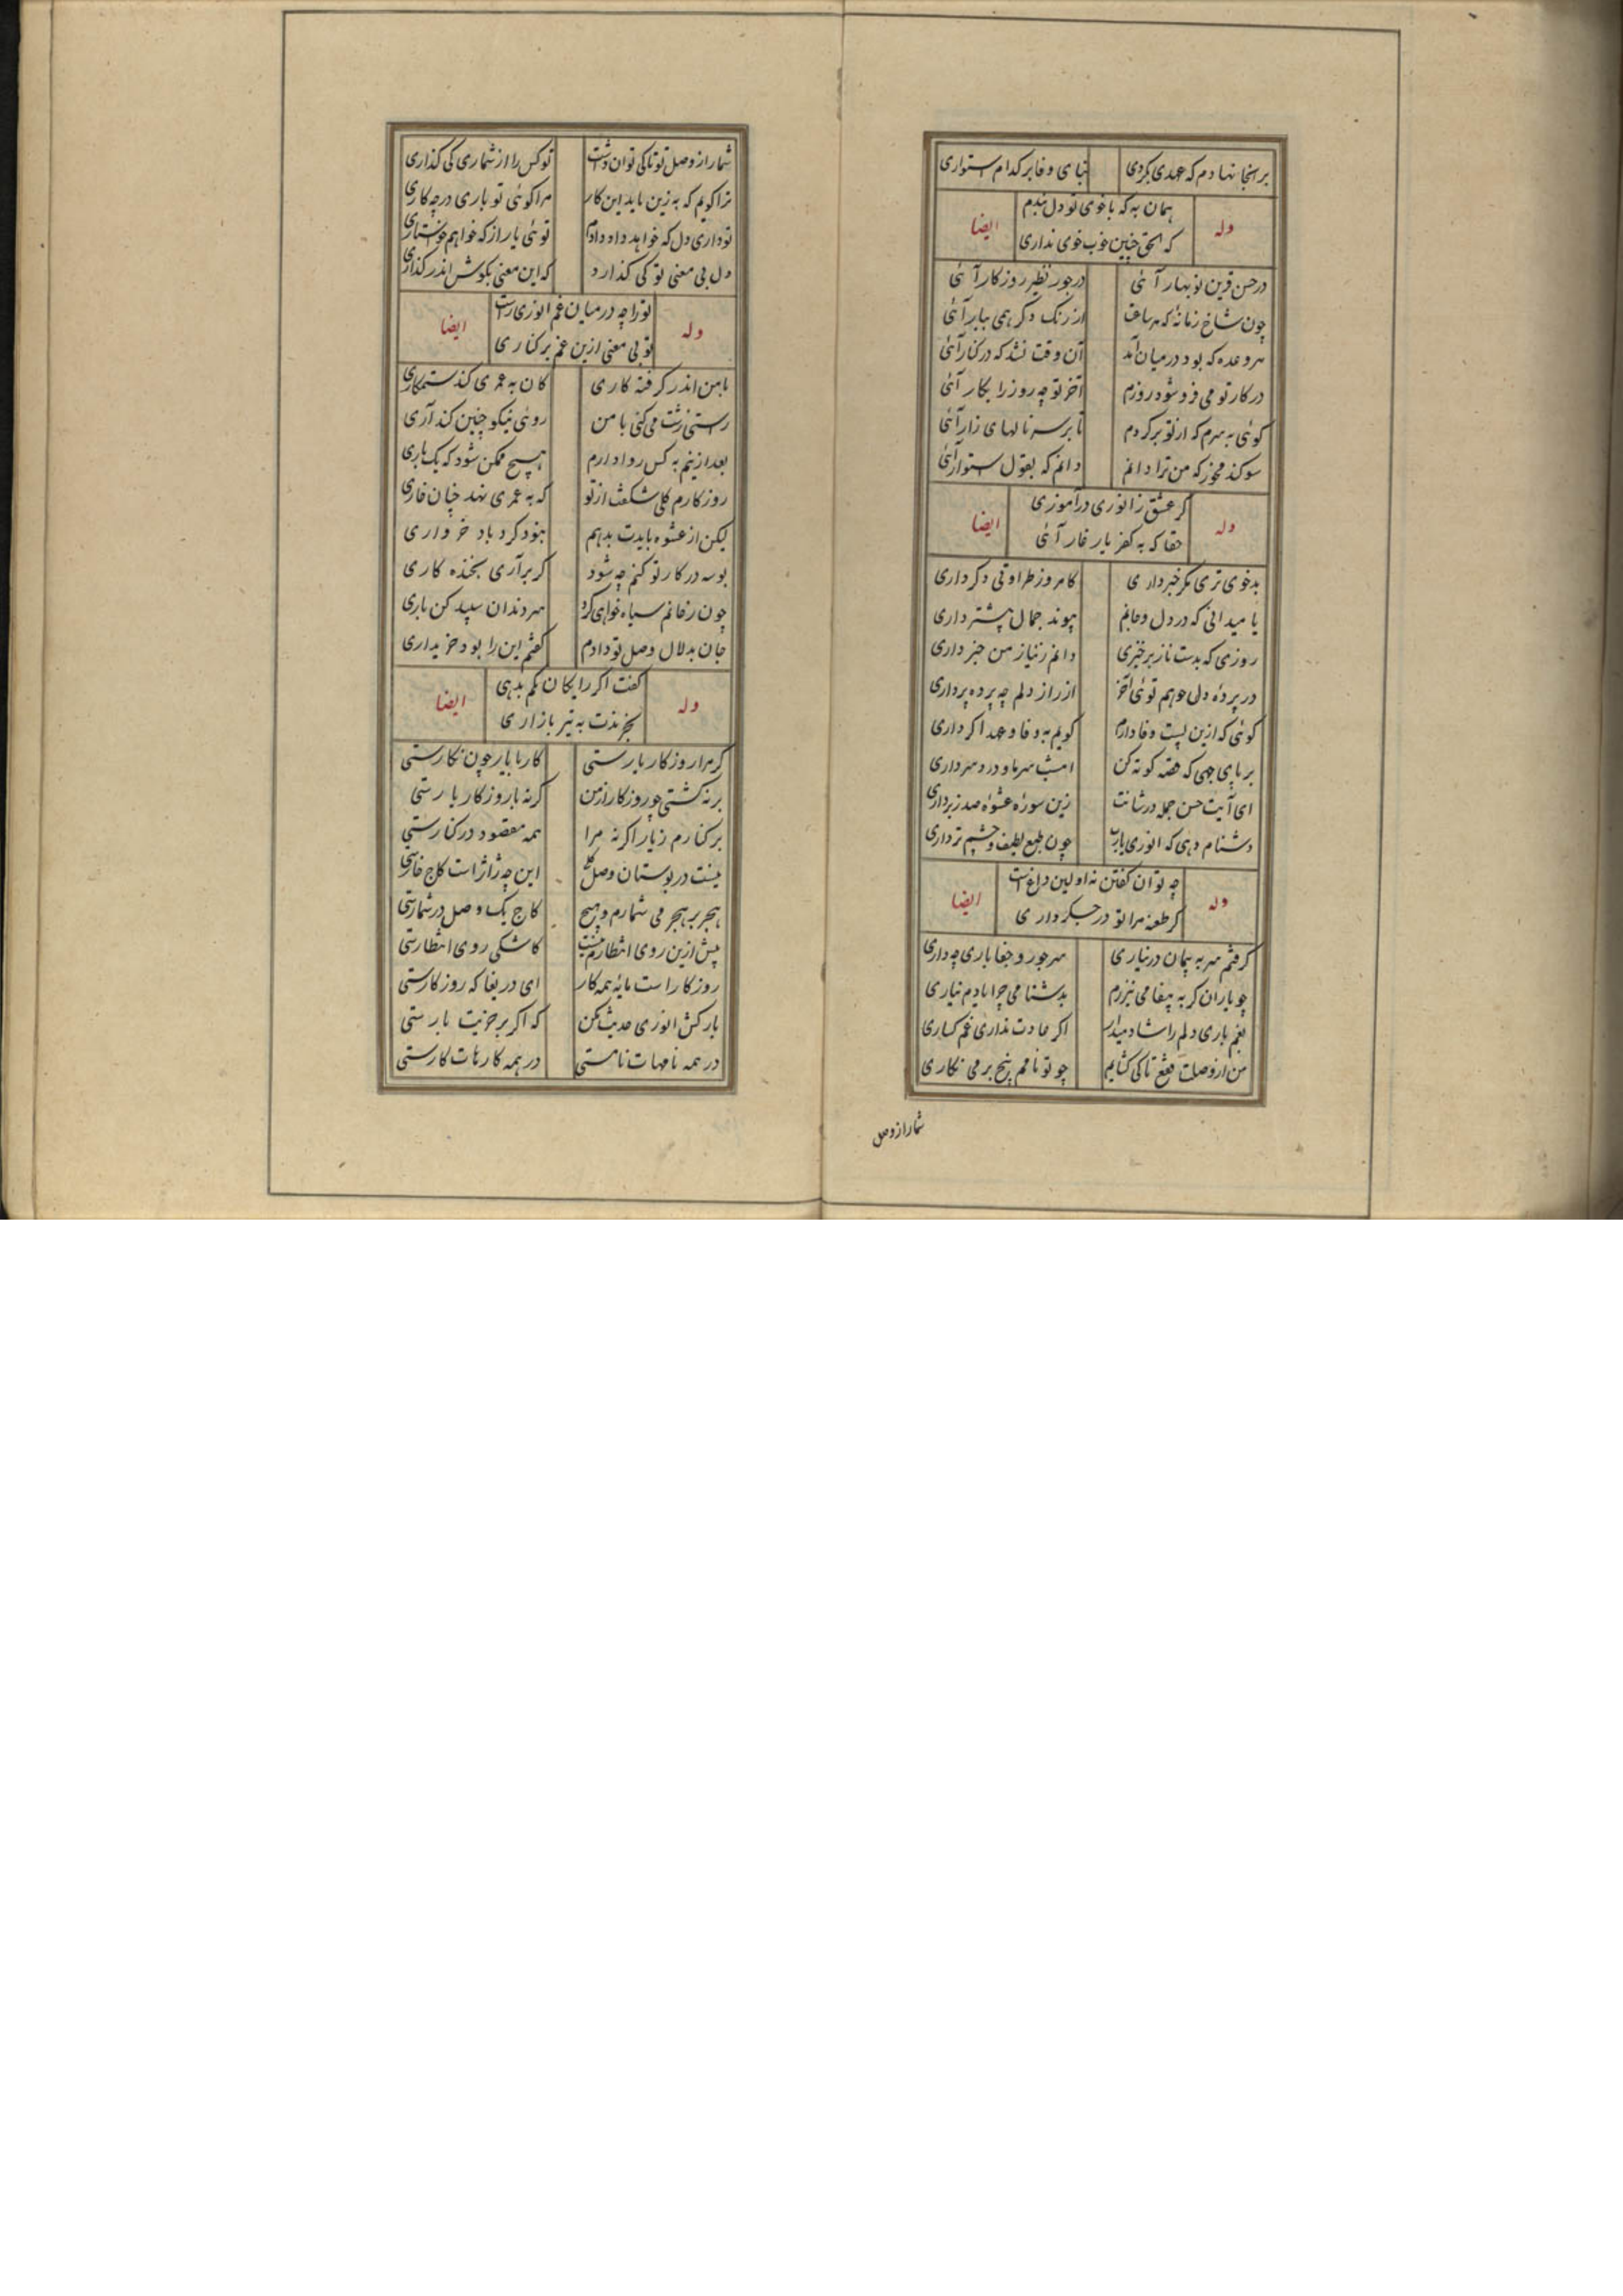 برانجا نهادم که عهدی بکردی بنای وفا بر کدام استواری
همان به که با خوی تو دل نبندم
وله ایضا
که الحق چنین خوب خوی نداری
در حسن قرین نوبهار آئی در جور نظیر روزکار آئی
چون شاخ زمانه که هر ساعت از رنک دکر همی ببار آئی
هر وعده که بود در میان آمد آن وقت نشد که در کنار آئی
در کار تو می فروشود روزم آخر تو چه روز را بکار آئی
کوئی به سرم که از تو برکردم تا بر سر نالهای زار آئی
سوکند مخور که من ترا دانم دانم که بقول استوار آئی
کر عشق ز انوری درآموزی
وله ایضا
حقا که به کفر یار غار آئی
بدخوی تری مکر خبر داری کامروز طراوتی دکر داری
یا میدانی که در دل و جانم پیوند جمال بیشتر داری
روزی که بدست ناز برخیزی دانم ز نیاز من خبر داری
در پرده دل چو هم توئی آخر از راز دلم چه پرده برداری
کوئی که ازین پست وفا دارم کویم به وفا و عهد اکر داری
بر پای جهی که قصه کوته کن امشب سر ما و درد سر داری
ای آیت حسن جمله در شانت زین سوره عشوه صد ز بر داری
دشنام دهی که انوری یارب چون طبع لطیف و چشم تر داری
چه توان کفتن نه اولین داغ است
وله ایضا
کر طعنه مرا تو در جکر داری
کرفتم سر به پیمان درنیاری سر جور و جفا باری چه داری
چو یاران کر به پیغامی نیرزم بدشنامی چرا یادم نیاری
بغم باری دلم را شاد میدار اکر عادت نداری غم کساری
من از وصلت فقع تا کی کشایم چو تو نامم به یخ بر می نکاری
شمار از وصل
شمار از وصل تو تا کی توان داشت تو کس را از شماری کی کذاری
ترا کویم که به زین باید این کار مرا کوئی تو باری در چه کاری
تو داری دل که خواهد داد دادم توئی یار از که خواهم خواست یاری
دل بی معنی تو کی کذارد که این معنی بکوش اندر کذاری
تو را چه در میان غم انوری راست
وله ایضا
تو بی معنی ازین غم برکناری
با من اندر کرفته کاری کان به عمری کند ستمکاری
راستی زشت می کنی با من روی نیکو چنین کند آری
بعد ازینم به کس روا دارم هیچ ممکن شود که یک باری
روزکارم کلی شکفت از تو که به عمری نهد چنان خاری
لیکن از عشوه بایدت بدهم بنود کرد باد خرواری
بوسه در کار تو کنم چه شود کر برآری بخنده کاری
چون رخانم سیاه خواهی کرد سر دندان سپید کن باری
جان بدلال وصل تو دادم کفتم این را بود خریداری
کفت اکر رایکان نکم بدهی
وله ایضا
بخرندت به تیز بازاری
کر مرا روزکار یارستی کار با یار چون نکارستی
برنکشتی چو روزکار از من کرنه با روزکار یارستی
بر کنارم ز یار اکر نه مرا همه مقصود در کنارستی
نیست در بوستان وصل کلی این چه ژاژ است کاج خارستی
هجر بر هجر می شمارم و هیچ کاج یک وصل در شمارستی
پیش ازین روی انتظارم نیست کاشکی روی انتظارستی
روزکار است مایه همه کار ای دریغا که روزکارستی
بارکش انوری حدیث مکن که اکر بر خریت بارستی
در همه نامهات نامستی در همه کارهات کارستی